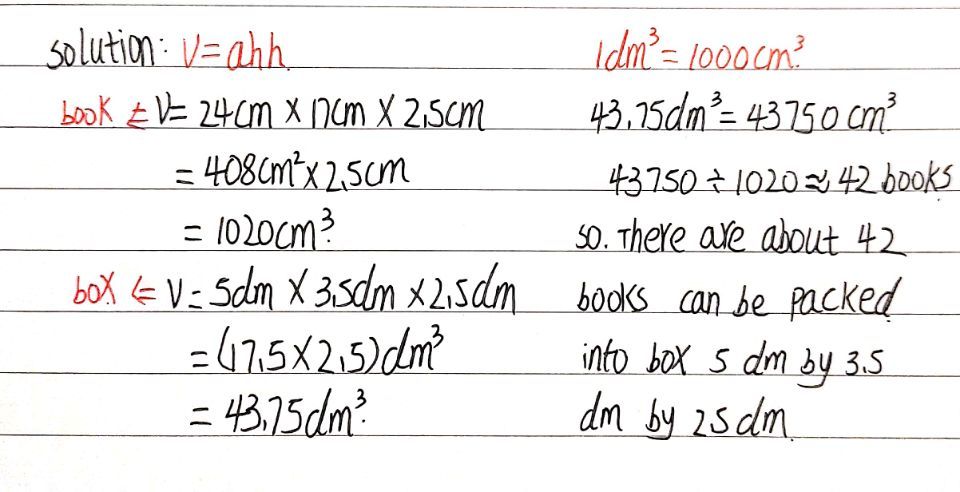 solution: V=ahh.
book ⇐ V= 24cm X 17cm X 2,5cm
= 408cm²x2,5cm
= 1020cm³.
box ⇐ V= 5dm X 3,5dm x2,5dm
=(17,5X2,5)dm³
= 43,75dm³.
1dm³= 1000cm³.
43,75dm³= 43750cm³
43750÷1020≈42 books
so. There are about 42
books can be packed
into box 5 dm by 3.5
dm by 25 dm.